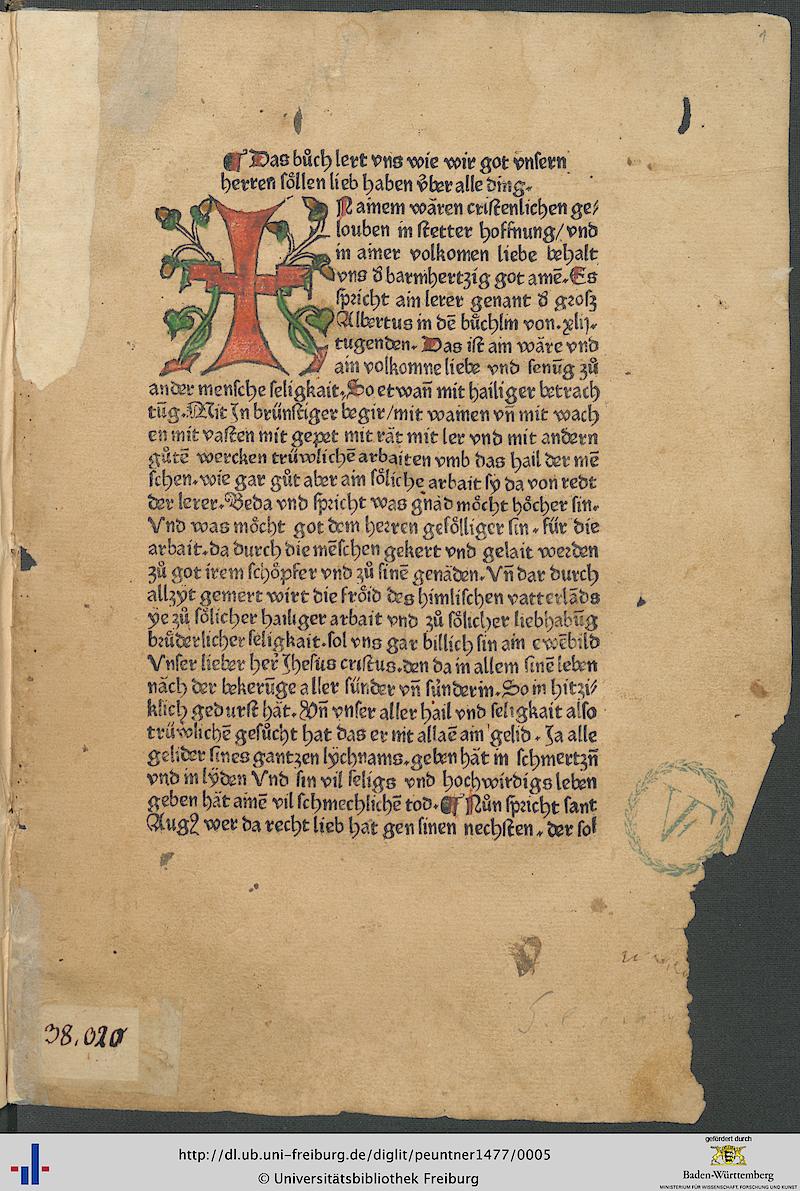 1
¶ Das bůch lert vns wie wir got vnsern
herren söllen lieb haben v̈ber alle ding.
IN ainem wären cristenlichen ge/
louben in stetter hoffnung/ vnd
in ainer volkomen liebe behalt
vns d̕ barmhertzig got amē. Es
spricht ain lerer genant d̕ grosz
Albertus in dē bůchlin von .xlij.
tugenden. Das ist ain wäre vnd
ain volkomne liebe vnd senūg zů
ander mensche seligkait. So etwañ mit hailiger betrach
tūg. Mit Jn brünstiger begir/ mit wainen vñ mit wach
en mit vasten mit gepet mit rät mit ler vnd mit andern
gůtē wercken trüwlichē arbaiten vmb das hail der mē
schen. wie gar gůt aber ain söliche arbait sy da von redt
der lerer. Beda vnd spricht was gnäd möcht höcher sin.
Vnd was möcht got dem herren gefölliger sin. für die
arbait. da durch die mēschen gekert vnd gelait werden
zů got irem schöpfer vnd zů sinē genäden. Vñ dar durch
allzyt gemert wirt die fröid des himlischen vatterlāds
ye zů sölicher hailiger arbait vnd zů sölicher liebhabūg
brüderlicher seligkait. sol vns gar billich sin ain ewēbild
Vnser lieber her̃ Jhesus cristus. den da in allem sinē leben
näch der bekerūge aller sünder vñ sünderin. So in hitzi/
klich gedurst hät. Vñ vnser aller hail vnd seligkait also
trüwlichē gesůcht hat das er nit allaē ain gelid. Ja alle
gelider sines gantzen lychnams. geben hät in schmertzñ
vnd in lyden Vnd sin vil seligs vnd hochwirdigs leben
geben hät ainē vil schmechlichē tod. ¶ Nůn spricht sant
Augꝰ wer da recht lieb hat gen sinen nechsten. der sol
38,020
http://dl.ub.uni-freiburg.de/diglit/peuntner1477/0005
© Universitätsbibliothek Freiburg
gefördert durch
Baden-Württemberg
MINISTERIUM FÜR WISSENSCHAFT, FORSCHUNG UND KUNST